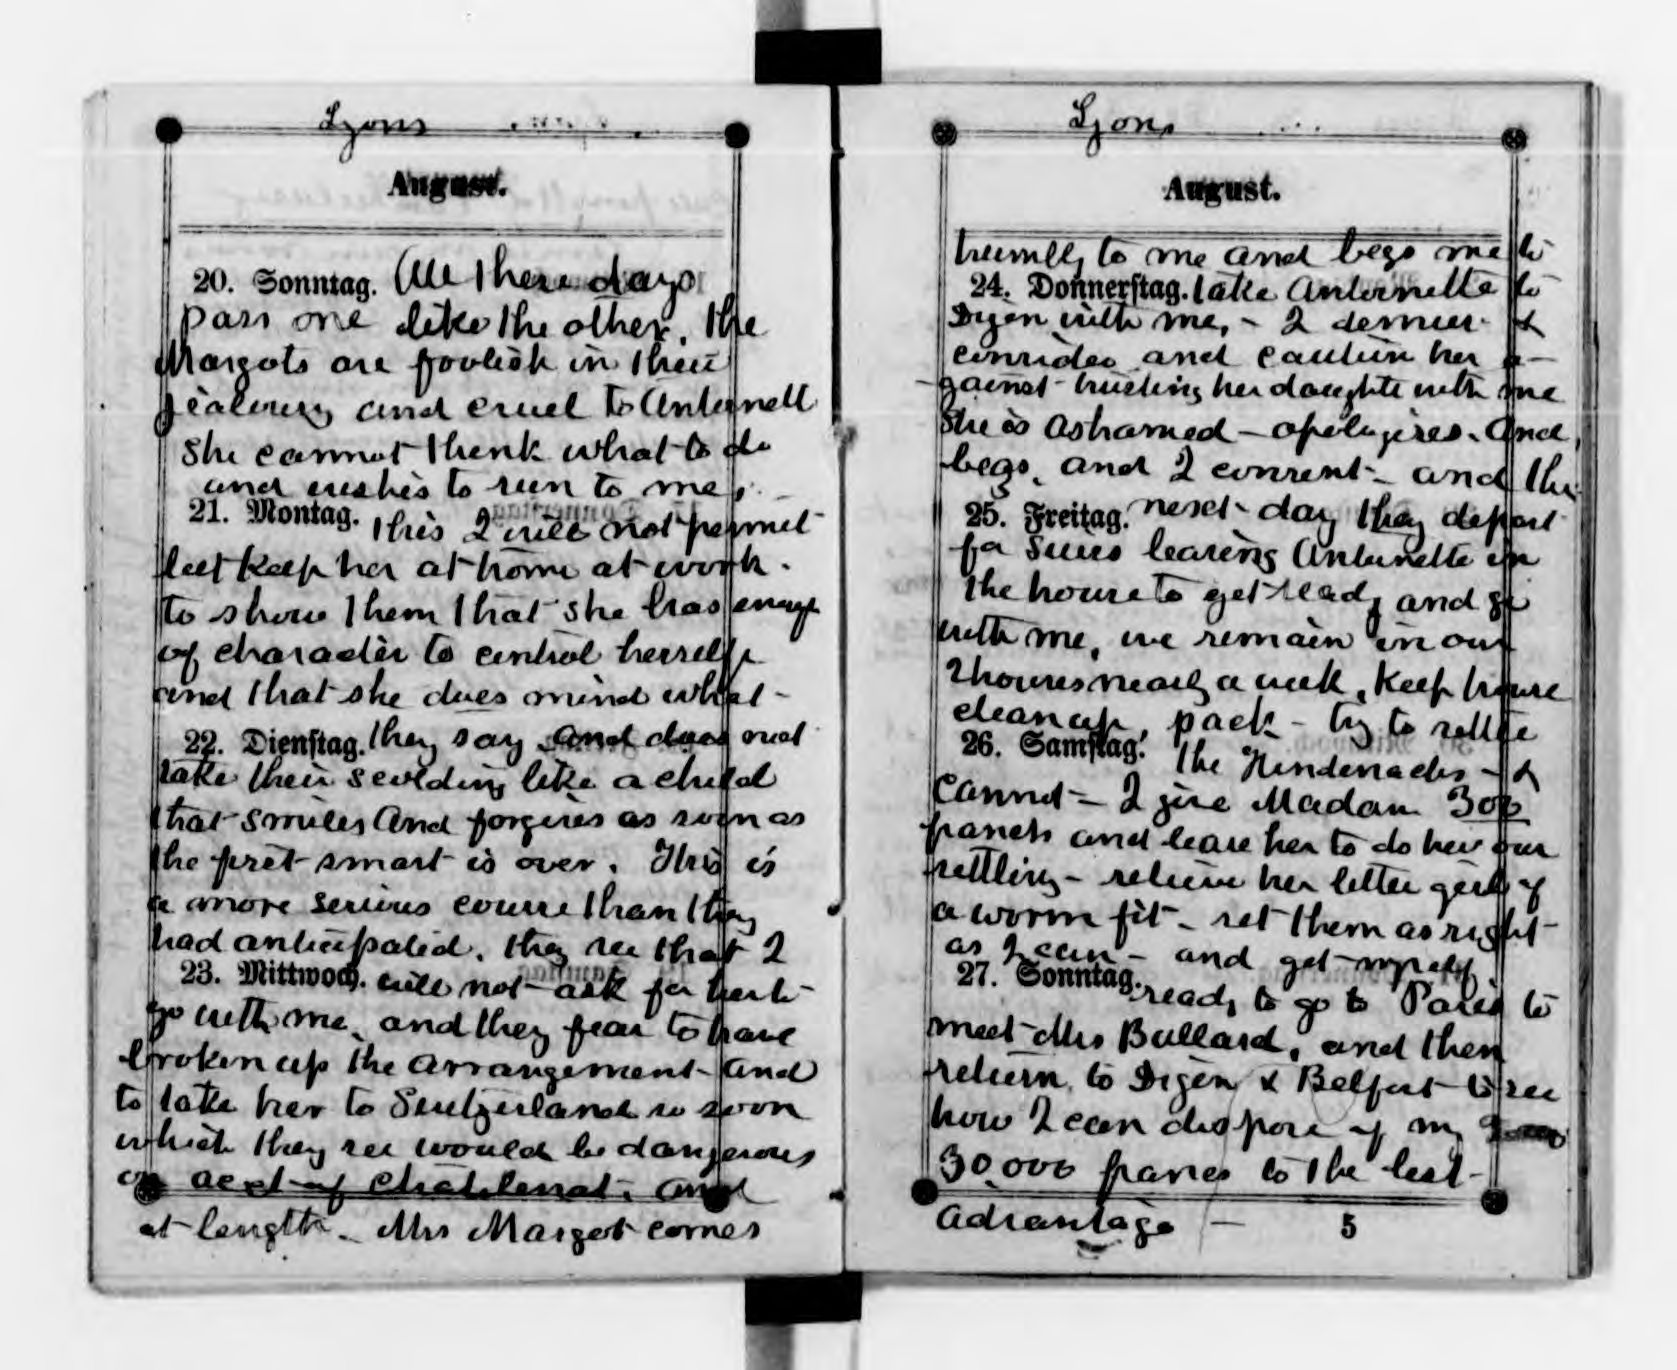 Lyons
August.
20. Sonntag. All these days
pass one like the other, the
Margots are foolish in their
jealousy and cruel to Antoinette
she cannot think what to do
and wishes to run to me,
21. Montag. this I will not permit
but keep her at home at work.
to show them that she has enough
of character to control herself
and that she does mind what
22. Dienstag. they say and does not
take their scolding like a child
that smiles and forgives as soon as
the first smart is over. This is
a more serious course than they
had anticipated. they see that I
23. Mittwoch. will not ask for her to
go with me, and they fear to have
broken up the arrangement and
to take her to Switzerland so soon
which they see would be dangerous
on acct of Chatelenat. and
at length. Mrs Margot comes
Lyons
August.
humbly to me and begs me to
24. Donnerstag. take Antoinette to
Dijon with me, - I demur &
consider and caution her a-
-gainst trusting her daughter with me
She is ashamed - apologizes. and
begs, and I consent - and the
25. Freitag. next day they depart
for Suiss leaving Antoinette in
the house to get ready and go
with me, we remain in our
2 houses nearly a week, keep house
clean up, pack - try to settle
26. Samstag. the - &
cannot - I give Madam 300
francs and leave her to do her own
settling - relieve her little girl of
a worm fit - set them as right
as I can - and get myself
27. Sonntag. ready to go to Paris to
meet Mrs Bullard, and then
return to Dijon & Belfort to see
how I can dispose of my
30.000 francs to the best
advantage -
5